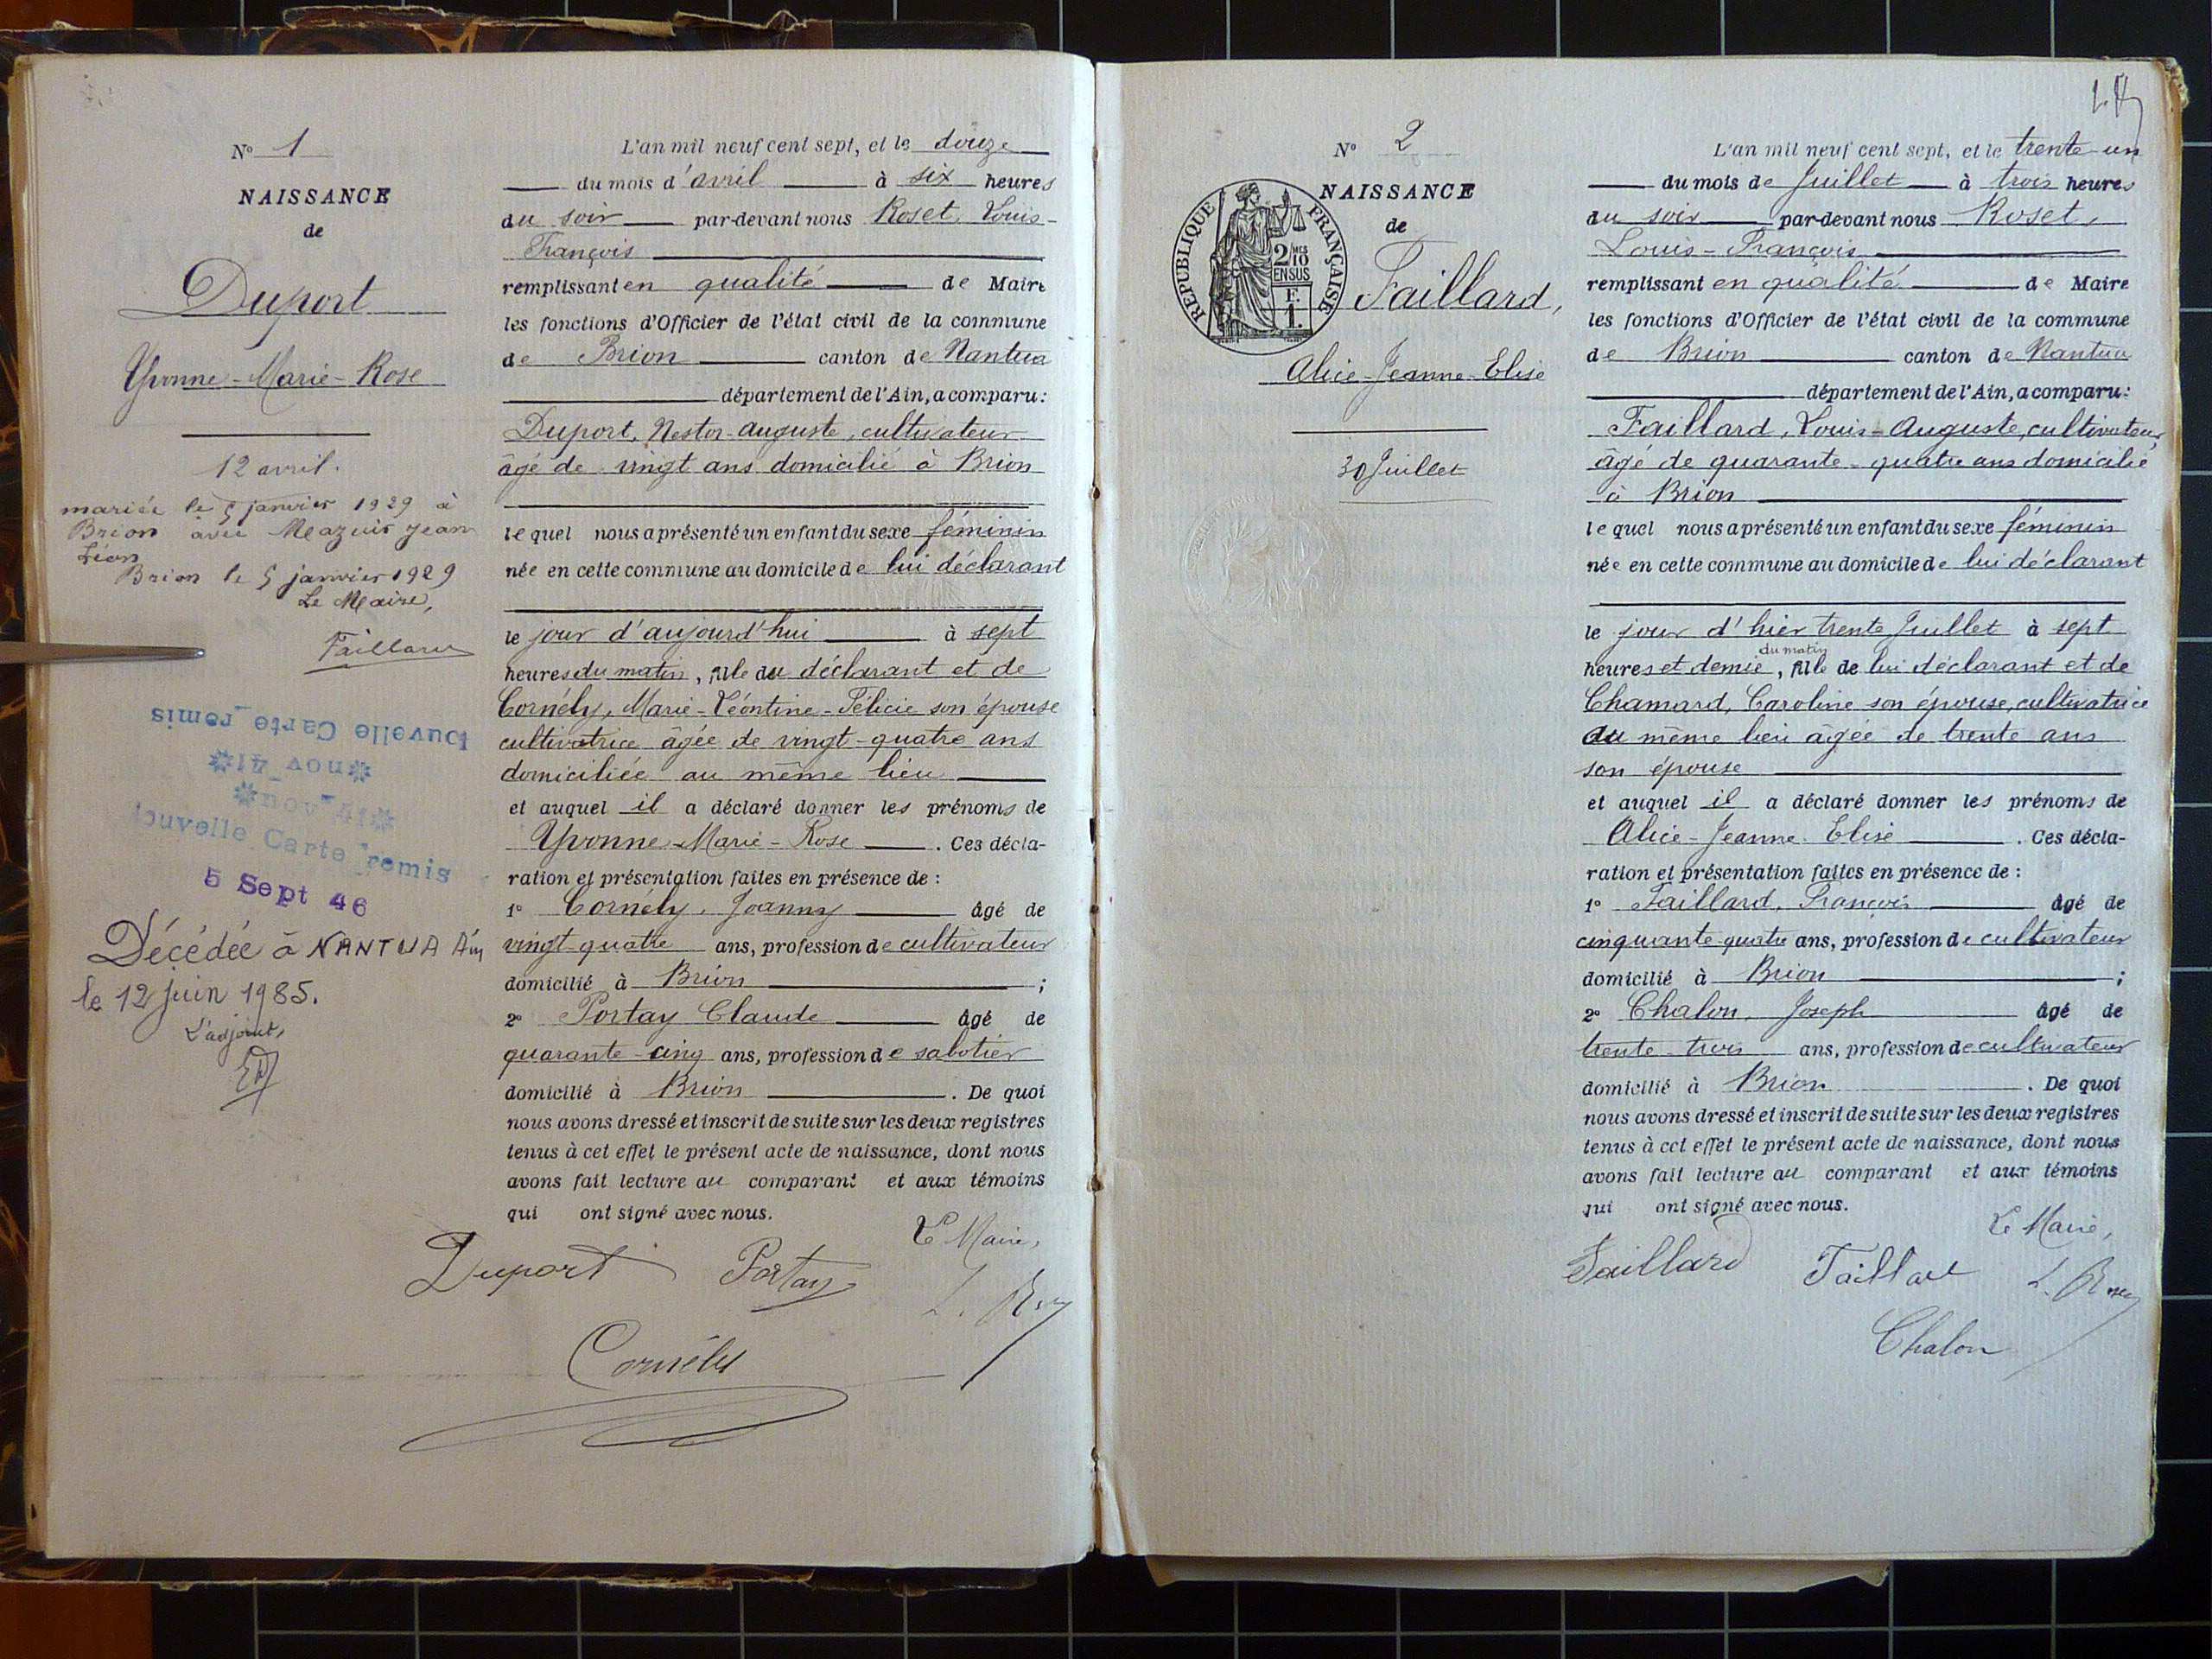 N° 1
NAISSANCE
de
Duport
Yvonne-Marie-Rose
12 avril.
mariée le 5 janvier 1929 à
Brion avec Mazuir Jean
Léon
Brion le 5 janvier 1929
Le Maire,
Faillard
ouvelle Carte remis
nov 41
nov 41
ouvelle Carte remis
5 Sept 46
Décédée à NANTUA Ain
le 12 Juin 1985.
L'adjoint,
L'an mil neuf cent sept, et le douze
du mois d'avril à six heures
du soir par-devant nous Roset, Louis-
François
remplissant en qualité de Maire
les fonctions d'Officier de l'état civil de la commune
de Brion canton de Nantua
département de l'Ain, a comparu:
Duport, Nestor-auguste, cultivateur
âgé de vingt ans domicilié à Brion
le quel nous a présenté un enfant du sexe féminin
née en cette commune au domicile de lui déclarant
le jour d'aujourd'hui à sept
heures du matin, fille du déclarant et de
Cornély, Marie-Léontine-Félicie son épouse
cultivatrice âgée de vingt-quatre ans
domiciliée au même lieu
et auquel il a déclaré donner les prénoms de
Yvonne-Marie-Rose. Ces décla-
ration et présentation faites en présence de :
1° Cornély, Joanny âgé de
vingt quatre ans, profession de cultivateur
domicilié à Brion ;
2° Portay Claude âgé de
quarante-cinq ans, profession de sabotier
domicilié à Brion. De quoi
nous avons dressé et inscrit de suite sur les deux registres
tenus à cet effet le présent acte de naissance, dont nous
avons fait lecture au comparant et aux témoins
qui ont signé avec nous.
Le Maire,
Duport Portay
Cornély
N° 2
NAISSANCE
de
REPUBLIQUE FRANÇAISE
2/10 MES
EN SUS
F.
1.
Faillard,
Alice-Jeanne-Elise
30 Juillet
L'an mil neuf cent sept, et le trente-un
du mois de Juillet à trois heures
du soir par-devant nous Roset,
Louis-François
remplissant en qualité de Maire
les fonctions d'Officier de l'état civil de la commune
de Brion canton de Nantua
département de l'Ain, a comparu:
Faillard, Louis-Auguste, cultivateur
âgé de quarante-quatre ans domicilié
à Brion
le quel nous a présenté un enfant du sexe féminin
née en cette commune au domicile de lui déclarant
le jour d'hier trente Juillet à sept
du matin
heures et demie, fille de lui déclarant et de
Chamard, Caroline son épouse, cultivatrice
du même lieu âgée de trente ans
son épouse
et auquel il a déclaré donner les prénoms de
Alice-Jeanne-Elise. Ces décla-
ration et présentation faites en présence de :
1° Faillard, François âgé de
cinquante-quatre ans, profession de cultivateur
domicilié à Brion ;
2° Chalon, Joseph âgé de
trente-trois ans, profession de cultivateur
domicilié à Brion. De quoi
nous avons dressé et inscrit de suite sur les deux registres
tenus à cet effet le présent acte de naissance, dont nous
avons fait lecture au comparant et aux témoins
qui ont signé avec nous.
Le Maire,
Faillard Faillard
Chalon